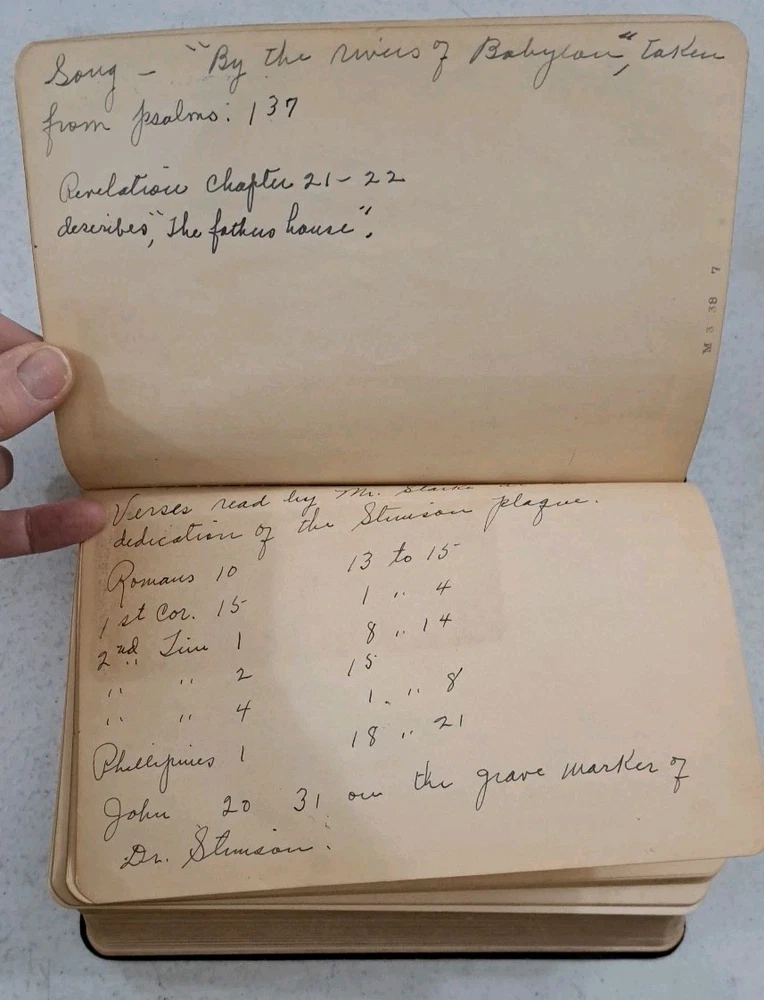 Song - "By the rivers of Babylon", taken
from psalms: 137
Revelation chapter 21 - 22
describes, "The fathers house".
M 3 38 7
Verses read by Mr.
dedication of the Stimson plaque.
Romans 10 13 to 15
1st Cor. 15 1 " 4
2nd Tim 1 8 " 14
" " 2 15
" " 4 1. " 8
Phillipines 1 18 " 21
John 20 31 on the grave marker of
Dr. Stimson.